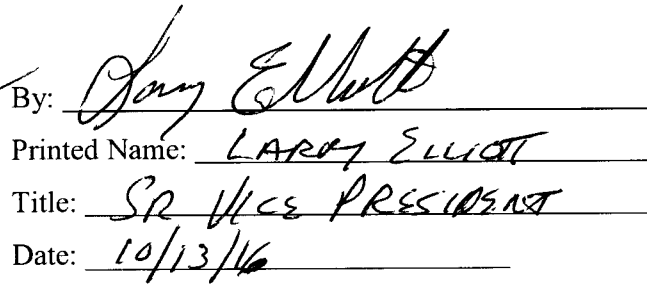 By: Larry Elliott
Printed Name: LARRY ELLIOTT
Title: SR VICE PRESIDENT
Date: 10/13/16